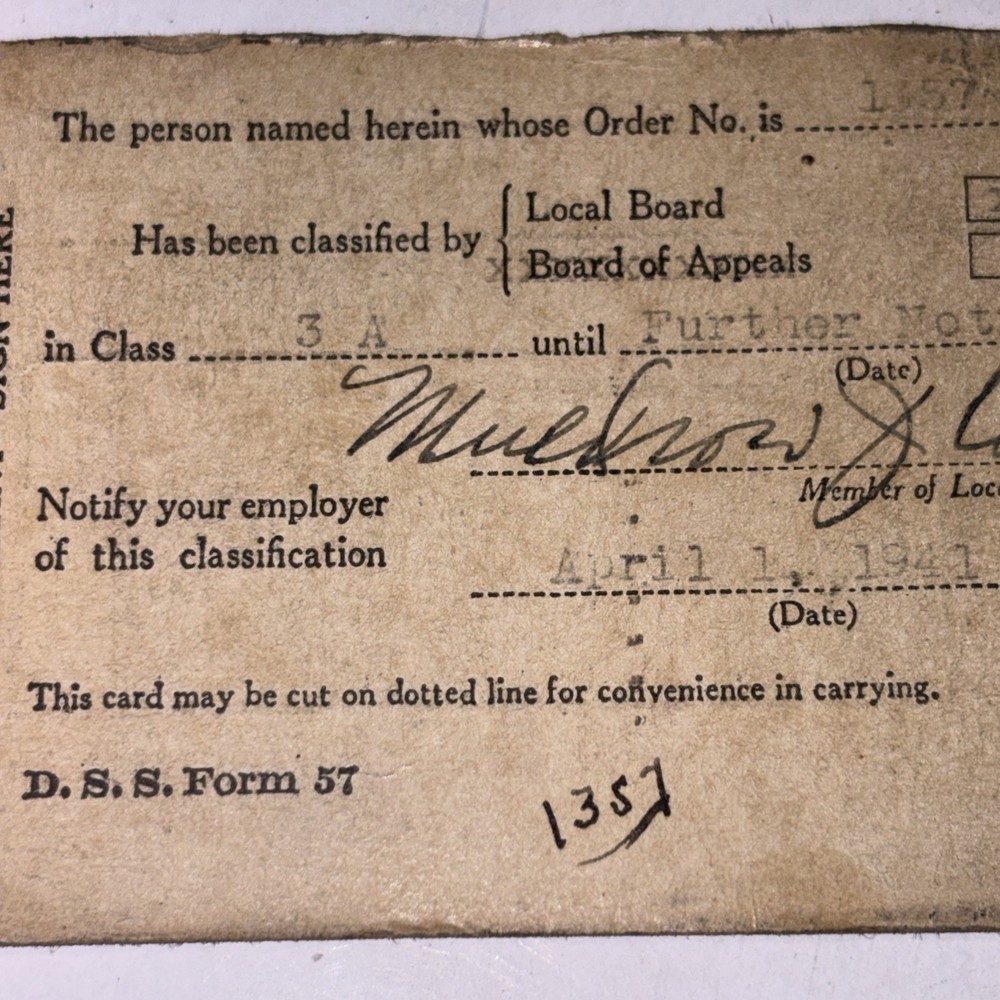 The person named herein whose Order No. is
Has been classified by { Local Board
Board of Appeals
in Class 3 A until Further Not
(Date)
Muldrow J
Member of Loc
Notify your employer
of this classification
April 1, 1941
(Date)
This card may be cut on dotted line for convenience in carrying.
D. S. S. Form 57
1357
SIGN HERE